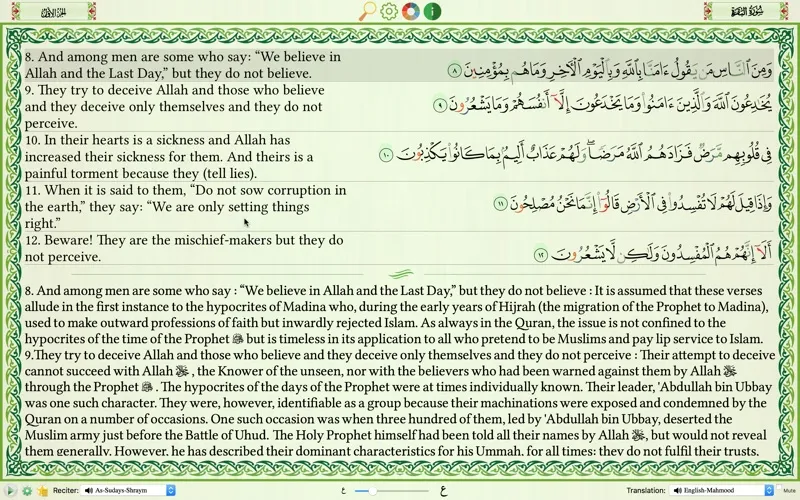 الجزء الأول
سورة البقرة
8. And among men are some who say: “We believe in
Allah and the Last Day,” but they do not believe.
وَمِنَ ٱلنَّاسِ مَن يَقُولُ ءَامَنَّا بِٱللَّهِ وَبِٱلْيَوْمِ ٱلْءَاخِرِ وَمَا هُم بِمُؤْمِنِينَ ٨
9. They try to deceive Allah and those who believe
and they deceive only themselves and they do not
perceive.
يُخَـٰدِعُونَ ٱللَّهَ وَٱلَّذِينَ ءَامَنُوا۟ وَمَا يَخْدَعُونَ إِلَّآ أَنفُسَهُمْ وَمَا يَشْعُرُونَ ٩
10. In their hearts is a sickness and Allah has
increased their sickness for them. And theirs is a
painful torment because they (tell lies).
فِى قُلُوبِهِم مَّرَضٌ فَزَادَهُمُ ٱللَّهُ مَرَضًا ۖ وَلَهُمْ عَذَابٌ أَلِيمٌۢ بِمَا كَانُوا۟ يَكْذِبُونَ ١٠
11. When it is said to them, “Do not sow corruption in
the earth,” they say: “We are only setting things
right.”
وَإِذَا قِيلَ لَهُمْ لَا تُفْسِدُوا۟ فِى ٱلْأَرْضِ قَالُوٓا۟ إِنَّمَا نَحْنُ مُصْلِحُونَ ١١
12. Beware! They are the mischief-makers but they do
not perceive.
أَلَآ إِنَّهُمْ هُمُ ٱلْمُفْسِدُونَ وَلَـٰكِن لَّا يَشْعُرُونَ ١٢
8. And among men are some who say : “We believe in Allah and the Last Day,” but they do not believe : It is assumed that these verses
allude in the first instance to the hypocrites of Madina who, during the early years of Hijrah (the migration of the Prophet to Madina),
used to make outward professions of faith but inwardly rejected Islam. As always in the Quran, the issue is not confined to the
hypocrites of the time of the Prophet ﷺ but is timeless in its application to all who pretend to be Muslims and pay lip service to Islam.
9.They try to deceive Allah and those who believe and they deceive only themselves and they do not perceive : Their attempt to deceive
cannot succeed with Allah , the Knower of the unseen, nor with the believers who had been warned against them by Allah
through the Prophet ﷺ . The hypocrites of the days of the Prophet were at times individually known. Their leader, 'Abdullah bin Ubbay
was one such character. They were, however, identifiable as a group because their machinations were exposed and condemned by the
Quran on a number of occasions. One such occasion was when three hundred of them, led by 'Abdullah bin Ubbay, deserted the
Muslim army just before the Battle of Uhud. The Holy Prophet himself had been told all their names by Allah , but would not reveal
them generally. However, he has described their dominant characteristics for his Ummah, for all times: they do not fulfil their trusts,
Reciter: As-Sudays-Shraym ع ع Translation: English-Mahmood Mute